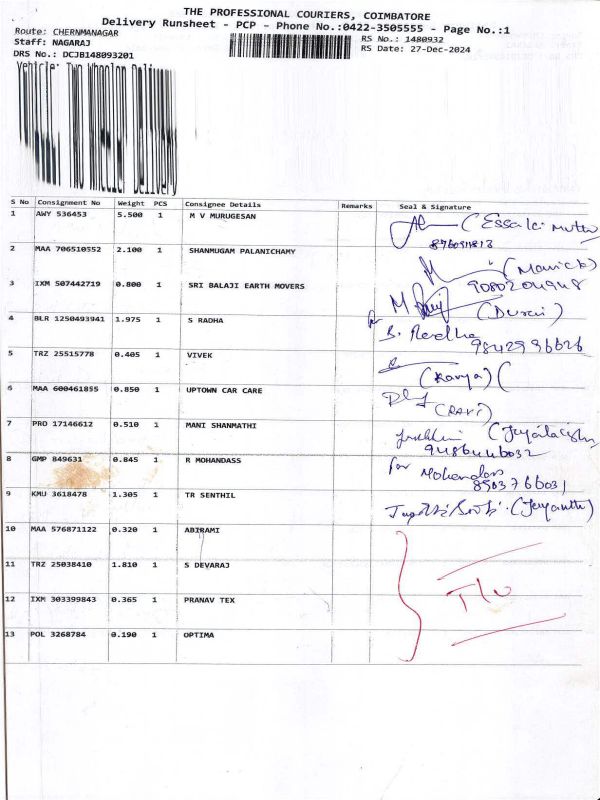 THE PROFESSIONAL COURIERS, COIMBATORE
Delivery Runsheet - PCP - Phone No.:0422-3505555 - Page No.:1
Route: CHERNMANAGAR
RS No.: 1480932
Staff: NAGARAJ
RS Date: 27-Dec-2024
DRS No.: DCJB148093201
Vehicle: Two Wheeler Delivery
S No Consignment No Weight PCS Consignee Details Remarks Seal & Signature
1 AWY 536453 5.500 1 M V MURUGESAN (Essaki muthu
2 MAA 706510552 2.100 1 SHANMUGAM PALANICHAMY (Manick)
9080204948
3 IXM 507442719 0.800 1 SRI BALAJI EARTH MOVERS (Durai)
4 BLR 1250493941 1.975 1 S RADHA S. Radha
9842996626
5 TRZ 25515778 0.405 1 VIVEK (Kavya) (
6 MAA 600461855 0.850 1 UPTOWN CAR CARE (RAVI)
7 PRO 17146612 0.510 1 MANI SHANMATHI
9486446032
8 GMP 849631 0.845 1 R MOHANDASS for Mohandass
8903766031
9 KMU 3618478 1.305 1 TR SENTHIL (Jayanthi)
10 MAA 576871122 0.320 1 ABIRAMI
11 TRZ 25038410 1.810 1 S DEVARAJ
12 IXM 303399843 0.365 1 PRANAV TEX
13 POL 3268784 0.190 1 OPTIMA